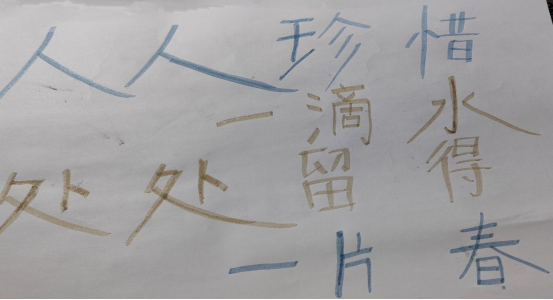 人人珍惜
一滴水
处处留得
一片春